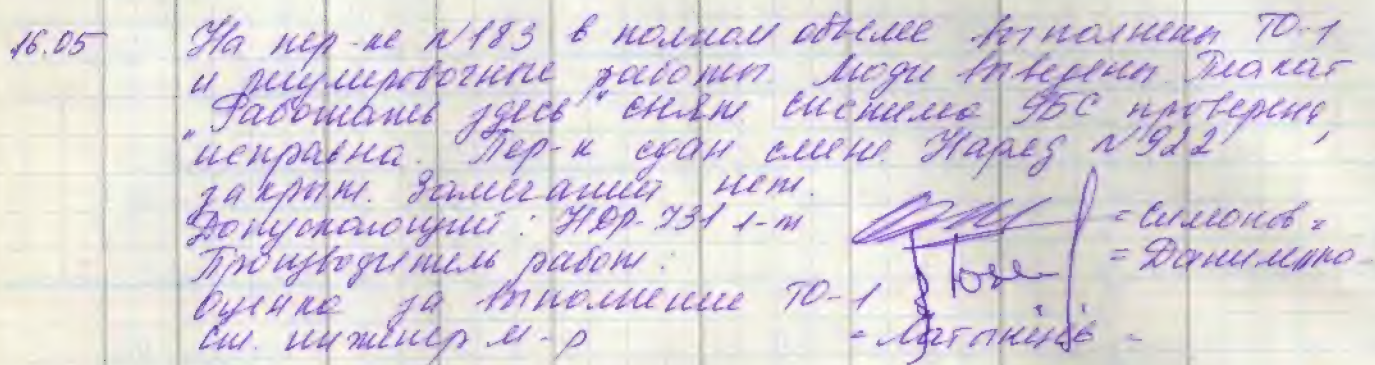 16.05 На пер-ке №183 в полном объеме выполнены ТО-1
и регулировочные работы. Люди выведены. Плакат
"Работать здесь" снят. Система ЯБС проверена,
исправна. Пер-к сдан смене. Наряд №922
закрыт. Замечаний нет.
Допускающий: НДР-731 л-т = Симонов =
Производитель работ: = Данименко
Оценка за выполнение ТО-1
Ст. инженер м-р